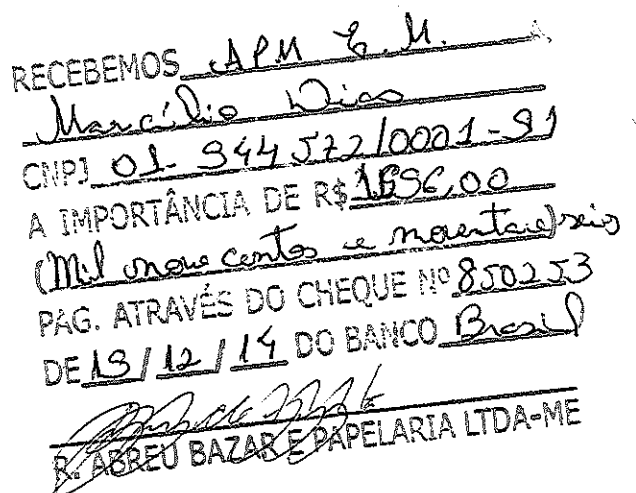 RECEBEMOS APM E.M.
Marcílio Dias
CNPJ 01-944572/0001-91
A IMPORTÂNCIA DE R$
(Mil nove centos e noventa e) seis
PAG. ATRAVÉS DO CHEQUE Nº 850253
DE 19/12/14 DO BANCO Brasil
R. ABREU BAZAR E PAPELARIA LTDA-ME